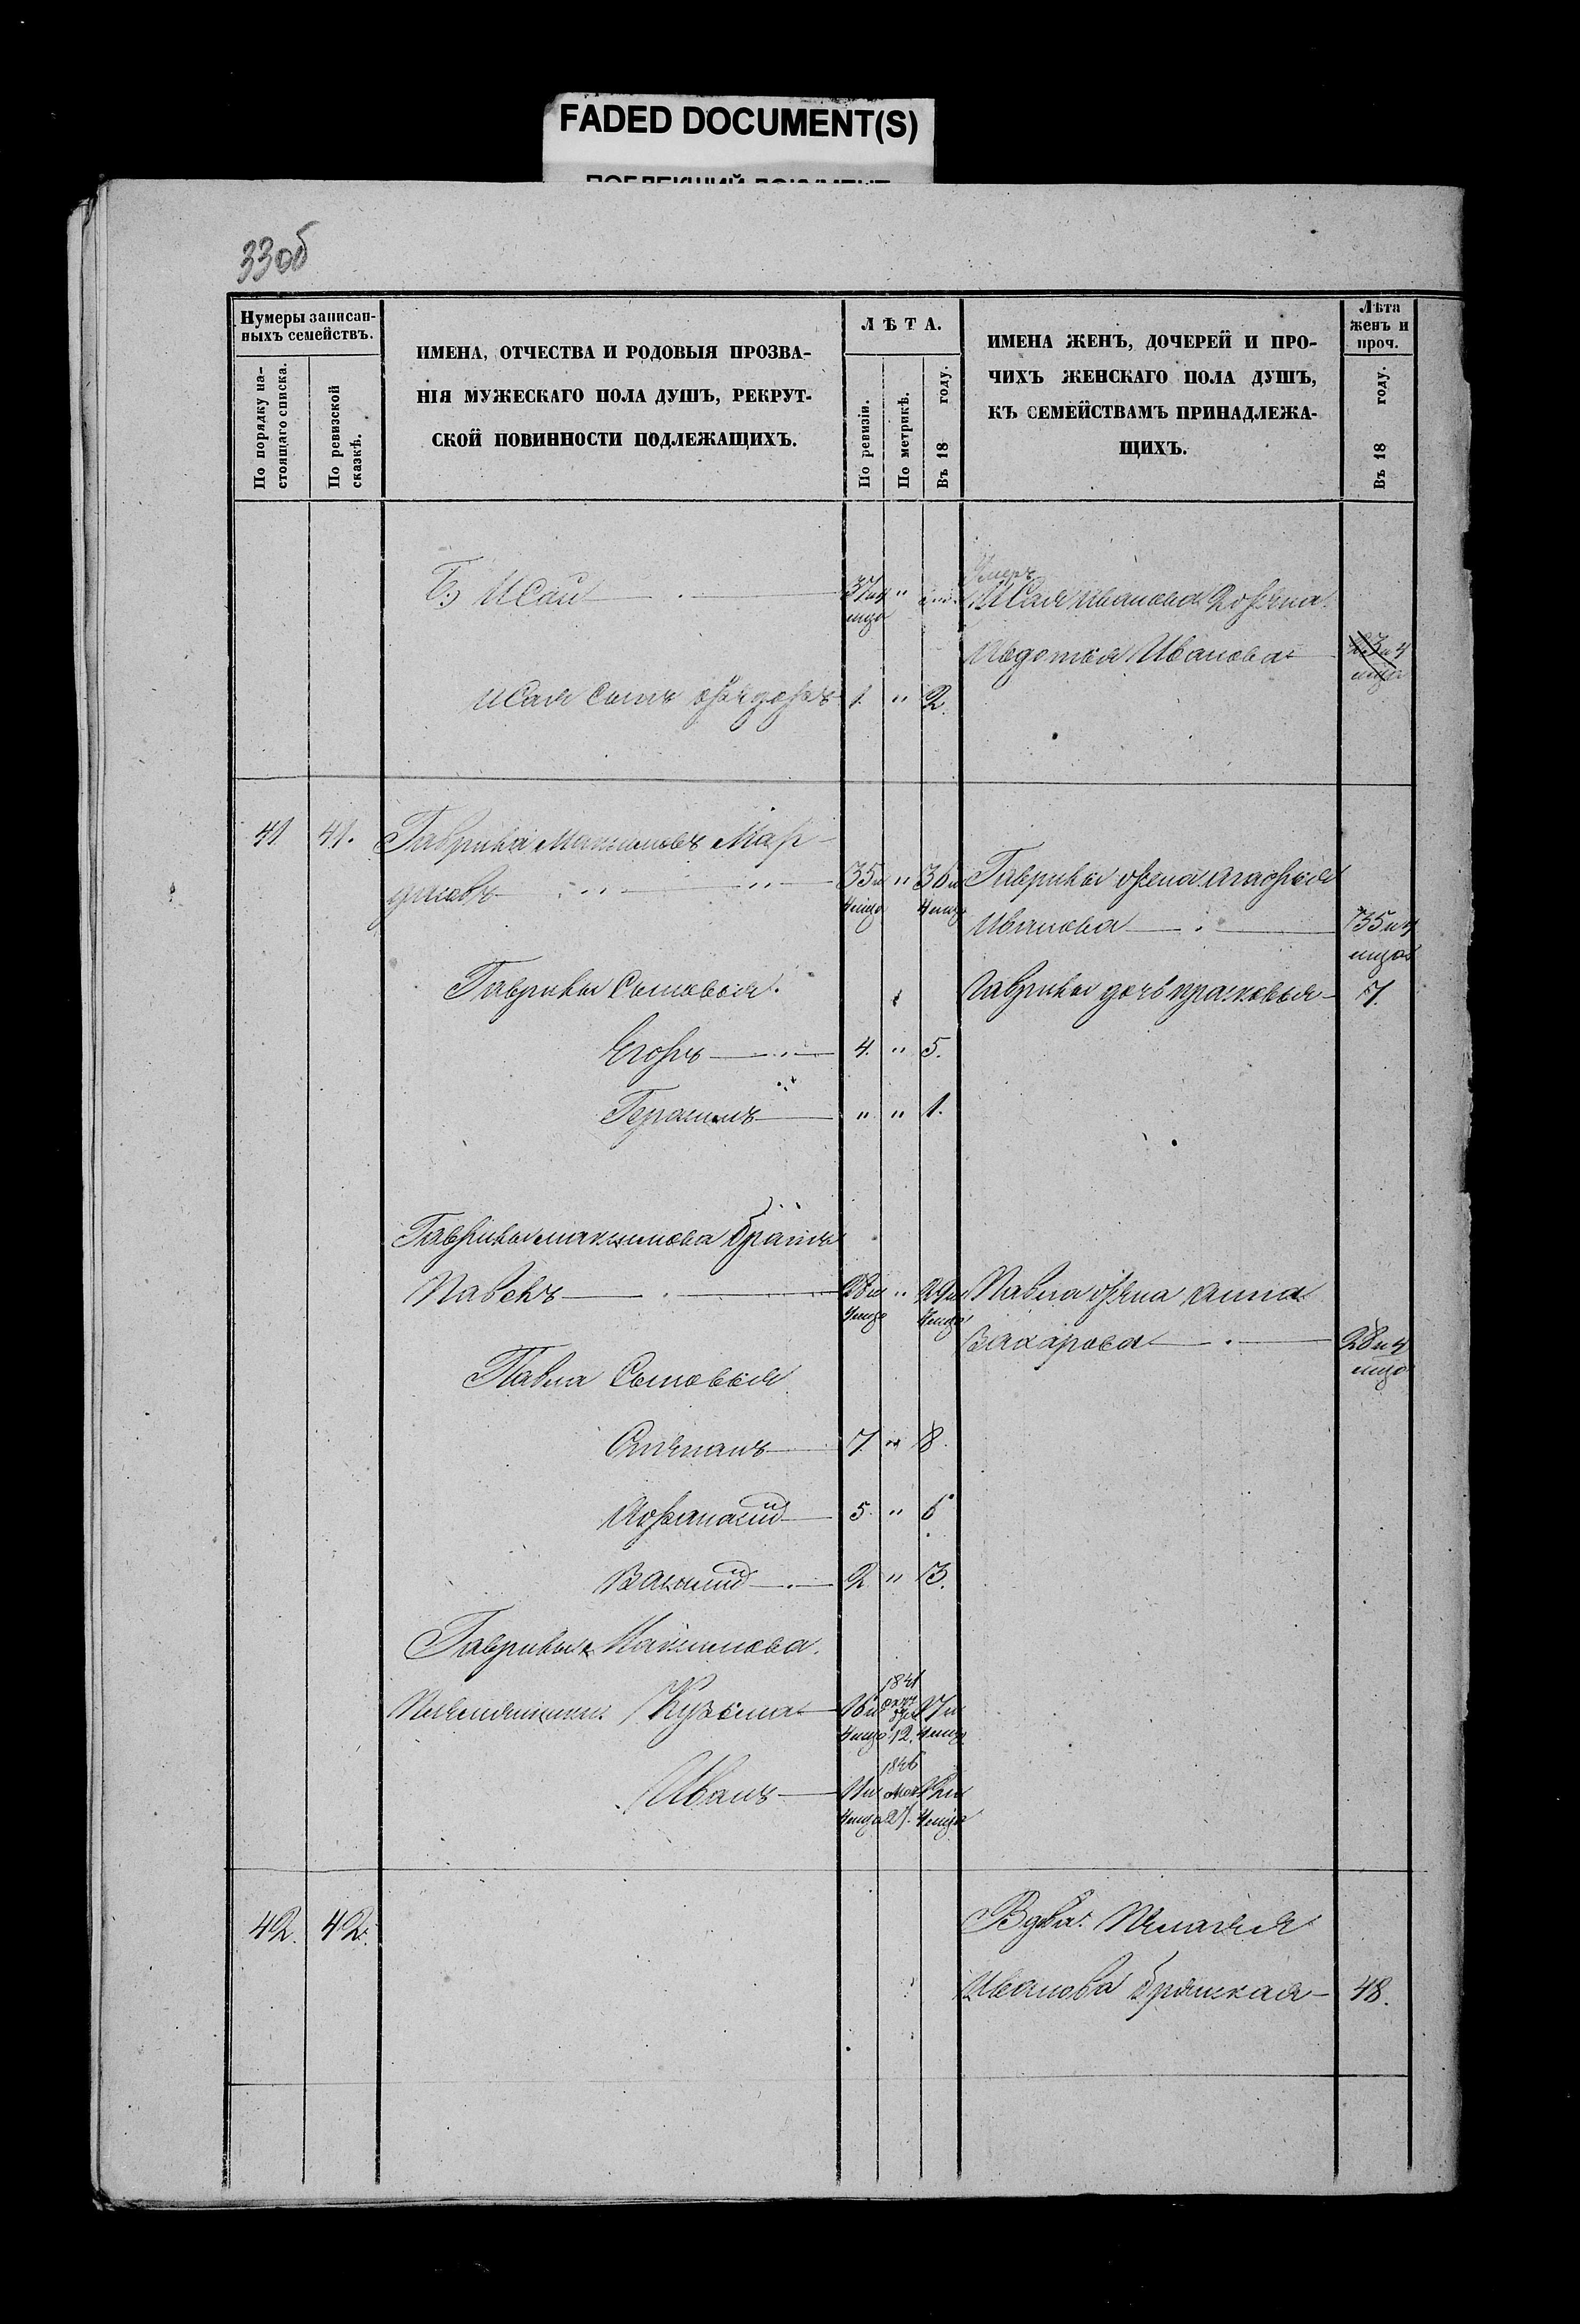 FADED DOCUMENT(S)
33об
Нумеры записан-
ныхъ семействъ.
По порядку на-
стоящаго списка.
По ревизской
сказкѣ.
ИМЕНА, ОТЧЕСТВА И РОДОВЫЯ ПРОЗВА-
НІЯ МУЖЕСКАГО ПОЛА ДУШЪ, РЕКРУТ-
СКОЙ ПОВИННОСТИ ПОДЛЕЖАЩИХЪ.
ЛѢТА.
По ревизіи.
По метрикѣ.
Въ 18 году.
ИМЕНА ЖЕНЪ, ДОЧЕРЕЙ И ПРО-
ЧИХЪ ЖЕНСКАГО ПОЛА ДУШЪ,
КЪ СЕМЕЙСТВАМЪ ПРИНАДЛЕЖА-
ЩИХЪ.
Лѣта
женъ и
проч.
Въ 18 году.
Исай "
Исая Иванова жена
Авдотья Иванова
Исая сынъ 1. " 2.
41 41. Гаврила Максимовъ Мар-
35 и " 36 и Гаврилы жена Агафья
4 мца 4 мца
Ивановна 35 и 4
мца
Гаврилы Сыновья. Гаврилы дочь Прасковья 7.
Егоръ 4. " 5.
Герасимъ " " 1.
Гаврилы Максимова братъ
Павелъ 28 и " 29 и Павла жена Анна
4 мца 4 мца
Захарова 28 и 4
мца
Павла Сыновья
Степанъ 7. " 8.
Афанасій 5. " 6
Василій 2 " 3.
Гаврилы Максимова.
1841
Племянники Кузьма 16 и 17 и
4 мца 12. 4 мца
1846
Иванъ 11 и
4 мца 27. 4 мца
42. 42. Вдова Пелагея
Иванова Брянская 48.